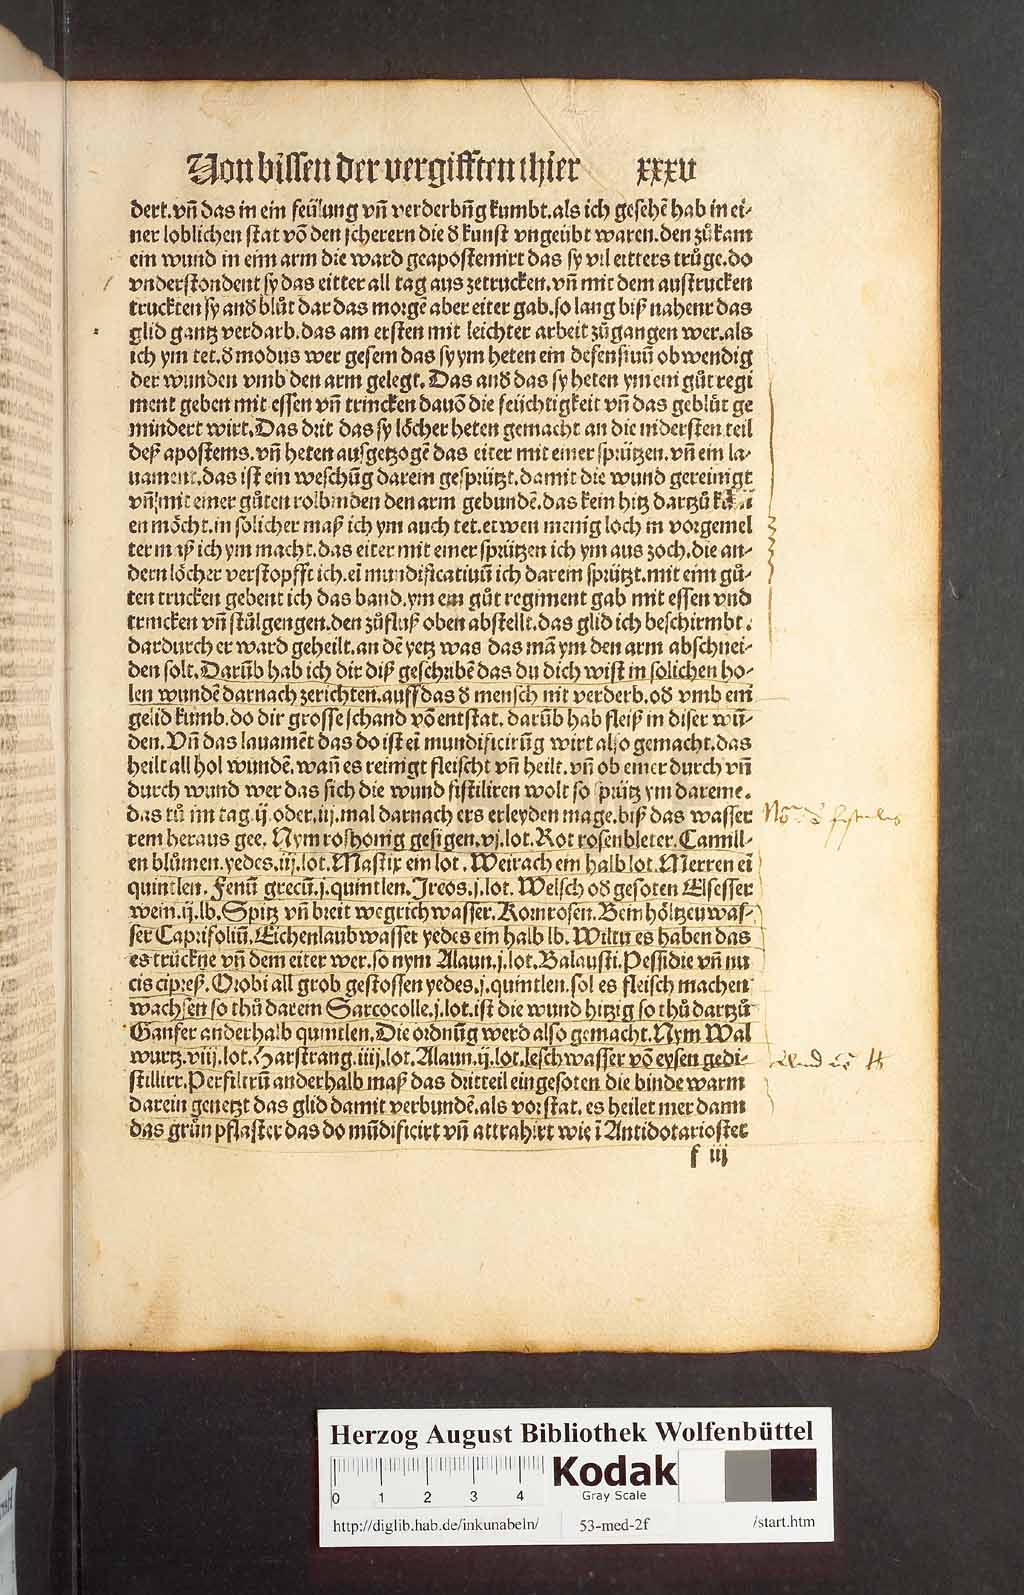 Von bissen der vergifften thier xxxv
dert.vn̄ das in ein feülung vn̄ verderbng̃ kumbt.als ich gesehē hab in ei-
ner loblichen stat vō den scherern die d kunst vngeübt waren.den zůkam
ein wund in eim arm die ward geapostemirt das sy vil eitters trůge.do
vnderstondent sy das eitter all tag aus zetrucken.vn̄ mit dem austrucken
truckten sy and blůt dar das morgē aber eiter gab.so lang biß nahent das
glid gantz verdarb.das am ersten mit leichter arbeit zůgangen wer.als
ich ym tet.d modus wer gesein das sy ym heten ein defensiuū obwendig
der wunden vmb den arm gelegt.Das and das sy heten ym ein gůt regi
ment geben mit essen vn̄ trincken dauō die feüchtigkeit vn̄ das geblůt ge
mindert wirt.Das drit das sy löcher heten gemacht an die nidersten teil
deß apostems.vn̄ heten ausgetzogē das eiter mit einer sprützen.vn̄ ein la-
uament.das ist ein weschūg darein gesprützt.damit die wund gereinigt
vn̄ mit einer gůten rolbinden den arm gebundē.das kein hitz dartzů
en möcht.in solicher maß ich ym auch tet.etwen menig loch in vorgemel
ter maß ich ym macht.das eiter mit einer sprützen ich ym aus zoch.die an-
dern löcher verstopfft ich.eī mundificatiuū ich darein sprützt.mit eim gů-
ten trucken gebent ich das band.ym ein gůt regiment gab mit essen vnd
trincken vn̄ stůlgengen.den zůfluß oben abstellt.das glid ich beschirmbt.
dardurch er ward geheilt.an dē yetz was das mā ym den arm abschnei-
den solt.Darūb hab ich dir diß geschribē das du dich wist in solichen ho-
len wundē darnach zerichten.auff das d mensch nit verderb.od vmb ein
gelid kumb.do dir grosse schand vō entstat.darūb hab fleiß in diser wū-
den.Vn̄ das lauamēt das do ist eī mundificirūg wirt also gemacht.das
heilt all hol wundē.wan̄ es reinigt fleischt vn̄ heilt.vn̄ ob einer durch vn̄
durch wund wer das sich die wund fistiliren wolt so sprütz ym darein e.
das tů im tag.ij.oder.iij.mal darnach ers erleyden mage.biß das wasser
rein heraus gee. Nym roshonig gesigen.vj.lot.Rot rosenbleter.Camill-
en blůmen.yedes.iij.lot.Mastix ein lot.Weirach ein halb lot.Merren eī
quintlen.Fenū grecū.j.quintlen.Ireos.j.lot.Welsch od gesoten Elsesser
wein.ij.lb.Spitz vn̄ breit wegrich wasser.Kornrosen.Beinhöltzen was-
ser Caprifoliū.Eichenlaub wasser yedes ein halb lb.Wiltu es haben das
es trückne vn̄ dem eiter wer.so nym Alaun.j.lot.Balausti.Pessidie vn̄ nu
cis cipreß.Orobi all grob gestossen yedes.j.quintlen.sol es fleisch machen
wachsen so thů darein Sarcocolle.j.lot.ist die wund hitzig so thů dartzů
Ganfer anderhalb quintlen.Die ordnūg werd also gemacht.Nym Wal
wurtz.viij.lot.Harstrang.iiij.lot.Alaun.ij.lot.leschwasser vō eysen gedi-
stillirt.Perfiltrū anderhalb maß das dritteil eingesoten die binde warm
darein genetzt das glid damit verbundē.als vor stat.es heilet mer dann
das grün pflaster das do mūdificirt vn̄ attrahirt wie ī Antidotario stet
f iij
Herzog August Bibliothek Wolfenbüttel
0 1 2 3 4
Kodak
Gray Scale
http://diglib.hab.de/inkunabeln/ 53-med-2f /start.htm